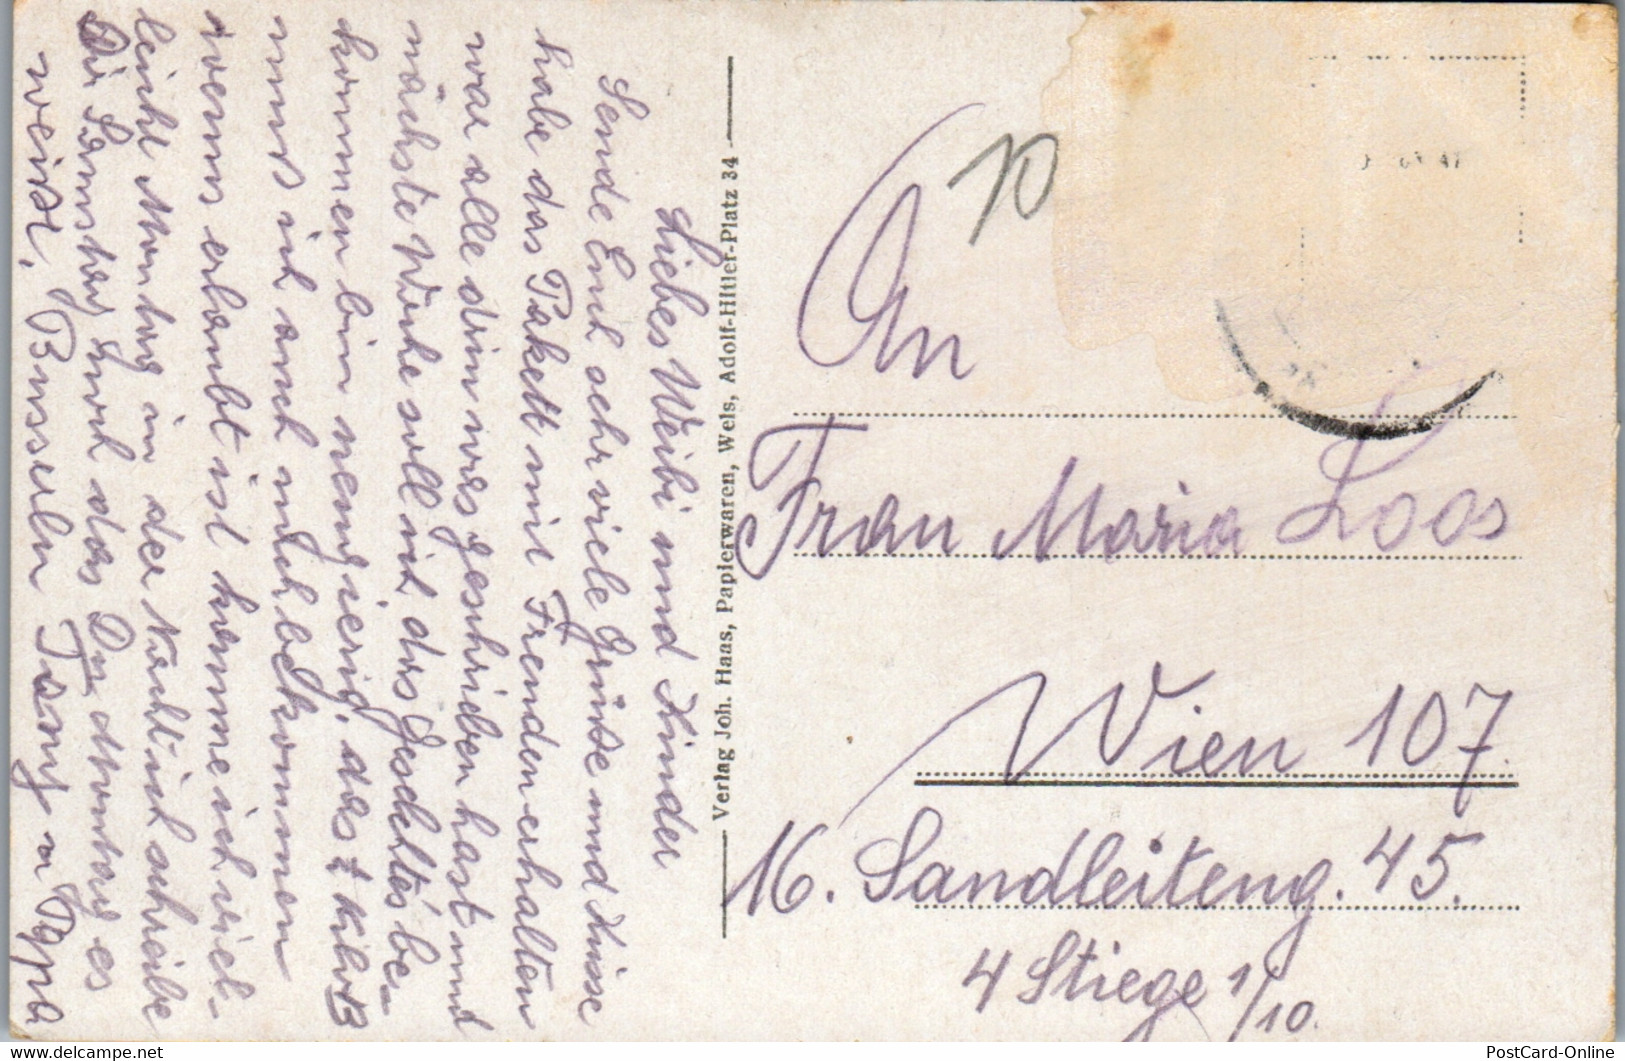 Liebes Weibi und Kinder
Sende Euch sehr viele Grüße und Küsse
habe das Pakett mit Freuden erhalten
war alles drin was geschrieben hast und
nächste Woche soll ich das Geselchtes be-
kommen bin neugierig, das
muss ich auch noch bekommen
wenns erlaubt ist komme ich viel-
leicht Montag in der Nacht ich schreibe
Dir Samstag noch das Du Montag es
weist, Busserln u Papa
Verlag Joh. Haas, Papierwaren, Wels, Adolf-Hitler-Platz 34
10
An
Frau Maria Loos
Wien 107
16. Sandleiteng. 45.
4 Stiege 1/10.
PostCard-Online